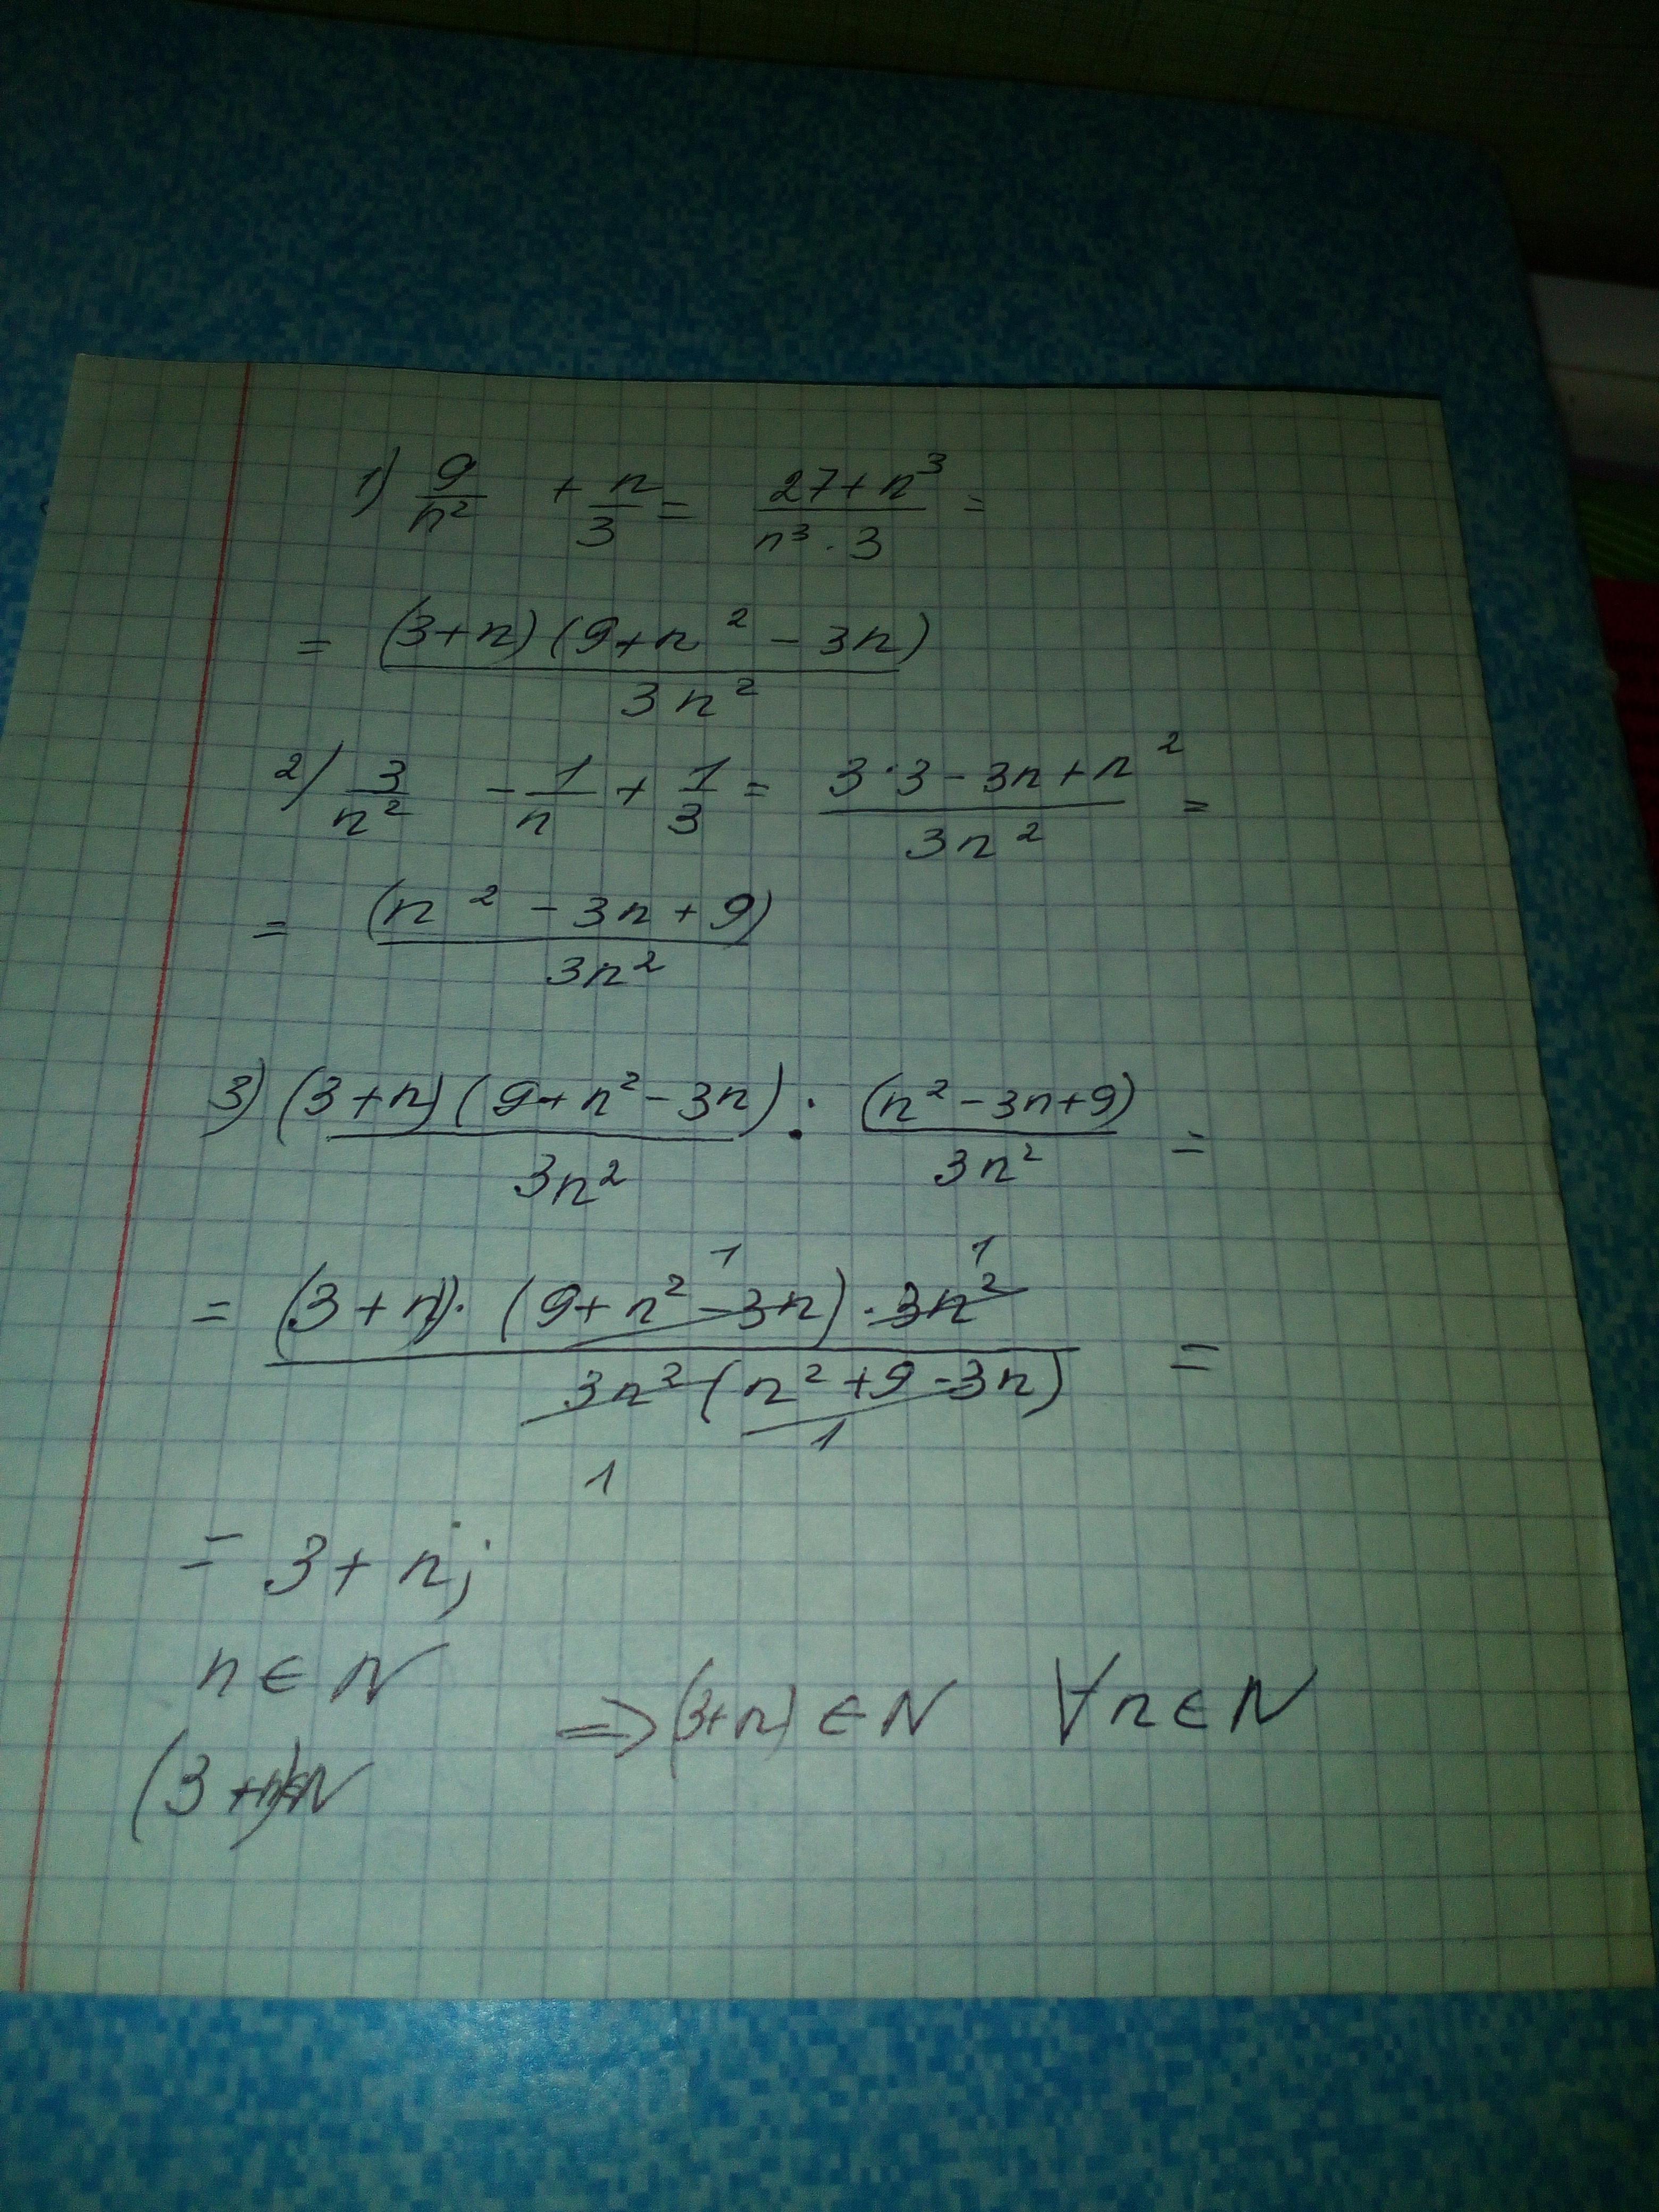 1) 9/n² + n/3 = (27+n³)/(n³·3) =
= (3+n)(9+n²-3n)/3n²
2) 3/n² - 1/n + 1/3 = (3·3-3n+n²)/3n² =
= (n²-3n+9)/3n²
3) (3+n)(9+n²-3n)/3n² : (n²-3n+9)/3n² =
1 1
= (3+n)·(9+n²-3n)·3n²/3n²(n²+9-3n) =
1 1
= 3+n;
n∈N
⇒(3+n)∈N ∀n∈N
(3+n)∈N